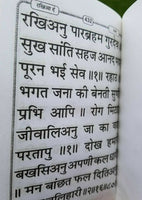 ४३८
रखिअनु पारब्रहम गुरदे
सुख सांति सहज आनद
पूरन भई सेव ॥१॥ रहाउ
भगत जना की बेनती सु
प्रभि आपि ॥ रोग मिट
जीवालिअनु जा का वड
परतापु ॥१॥ दोख हम
बखसिअनु अपणी कल धा
॥ मन बांछत फल दितिअनु